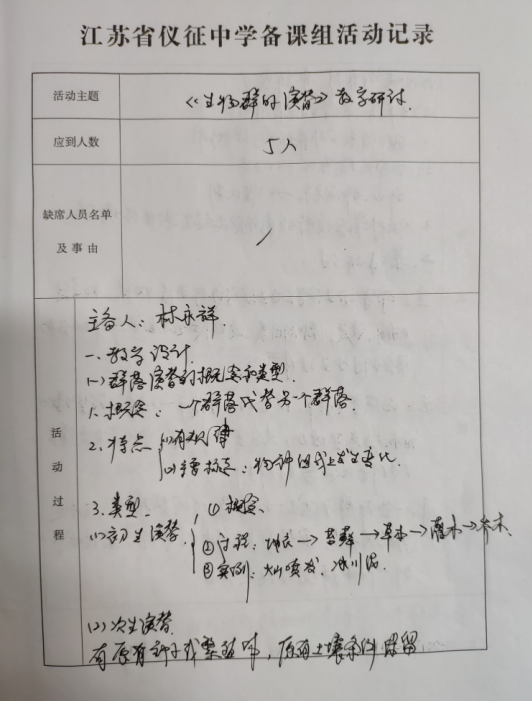 江苏省仪征中学备课组活动记录
活动主题
《生物群的演替》教学研讨.
应到人数
5人
缺席人员名单
及事由
/
活动过程
主备人:林永祥.
一、教学设计.
(一)群落演替的概念和类型.
1. 概念:一个群落代替另一个群落.
2. 特点 (1)有规律
(2)主要标志:物种组成上发生变化.
3. 类型.
(1)初生演替: ①概念
②过程:地衣→苔藓→草本→灌木→乔木.
③实例:火山喷发、冰川泥.
(2)次生演替.
有原有种子或繁殖体,原有土壤条件保留